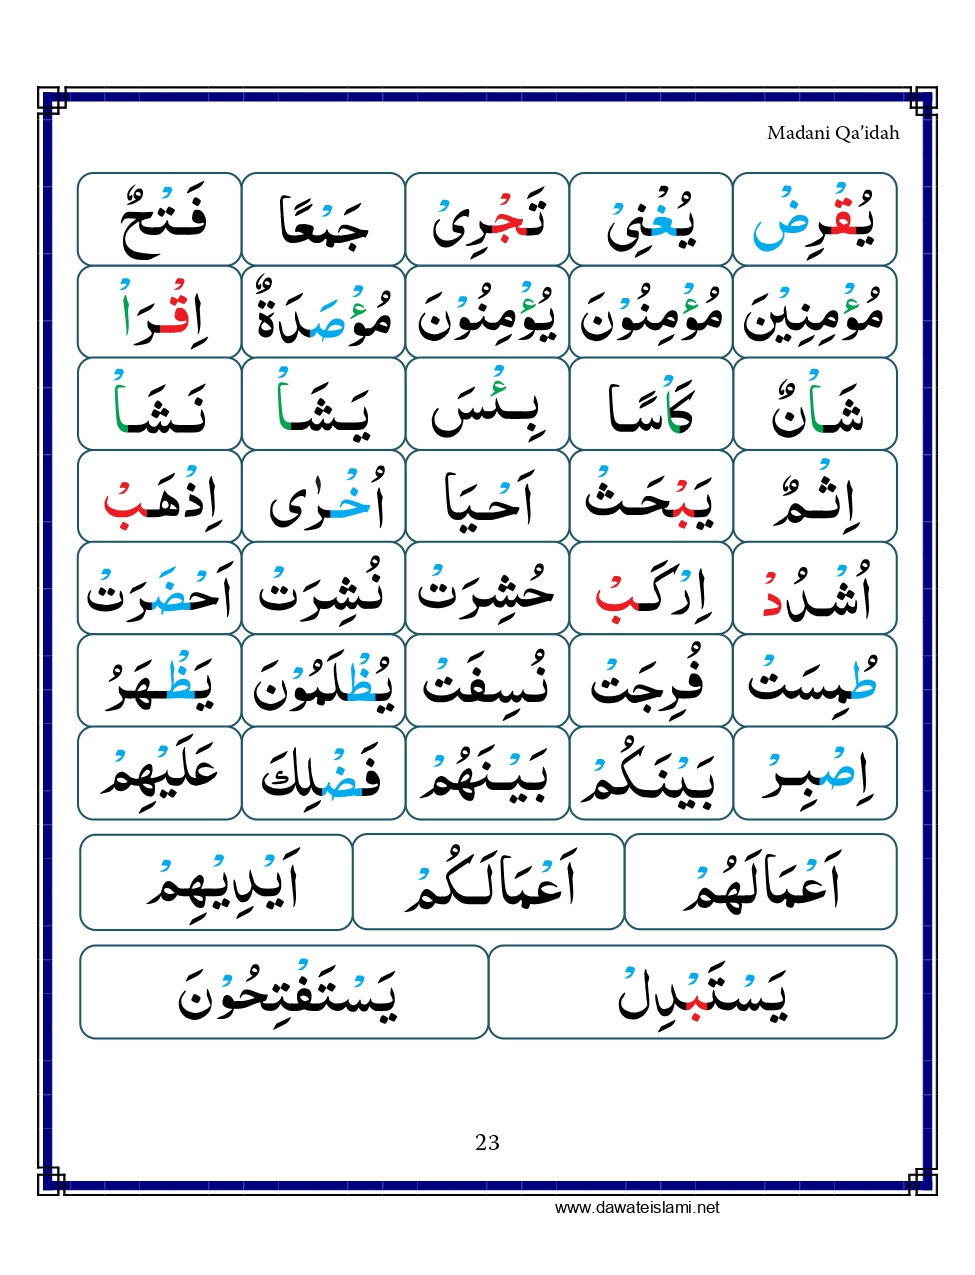 Madani Qa’idah
یُقْرِضُ یُغْنِیْ تَجْرِیْ جَمْعًا فَتْحٌ
مُؤْمِنِیْنَ مُؤْمِنُوْنَ یُؤْمِنُوْنَ مُؤْصَدَةٌ اِقْرَاْ
شَاْنٌ کَاْسًا بِئْسَ یَشَاْ نَشَاْ
اِثْمٌ یَبْحَثُ اَحْیَا اُخْرٰی اِذْهَبْ
اُشْدُدْ اِرْکَبْ حُشِرَتْ نُشِرَتْ اَحْضَرَتْ
طُمِسَتْ فُرِجَتْ نُسِفَتْ یُظْلَمُوْنَ یَظْهَرُ
اِصْبِرْ بَیْنَکُمْ بَیْنَهُمْ فَضْلِكَ عَلَیْهِمْ
اَعْمَالَهُمْ اَعْمَالَکُمْ اَیْدِیْهِمْ
یَسْتَبْدِلْ یَسْتَفْتِحُوْنَ
23
www.dawateislami.net